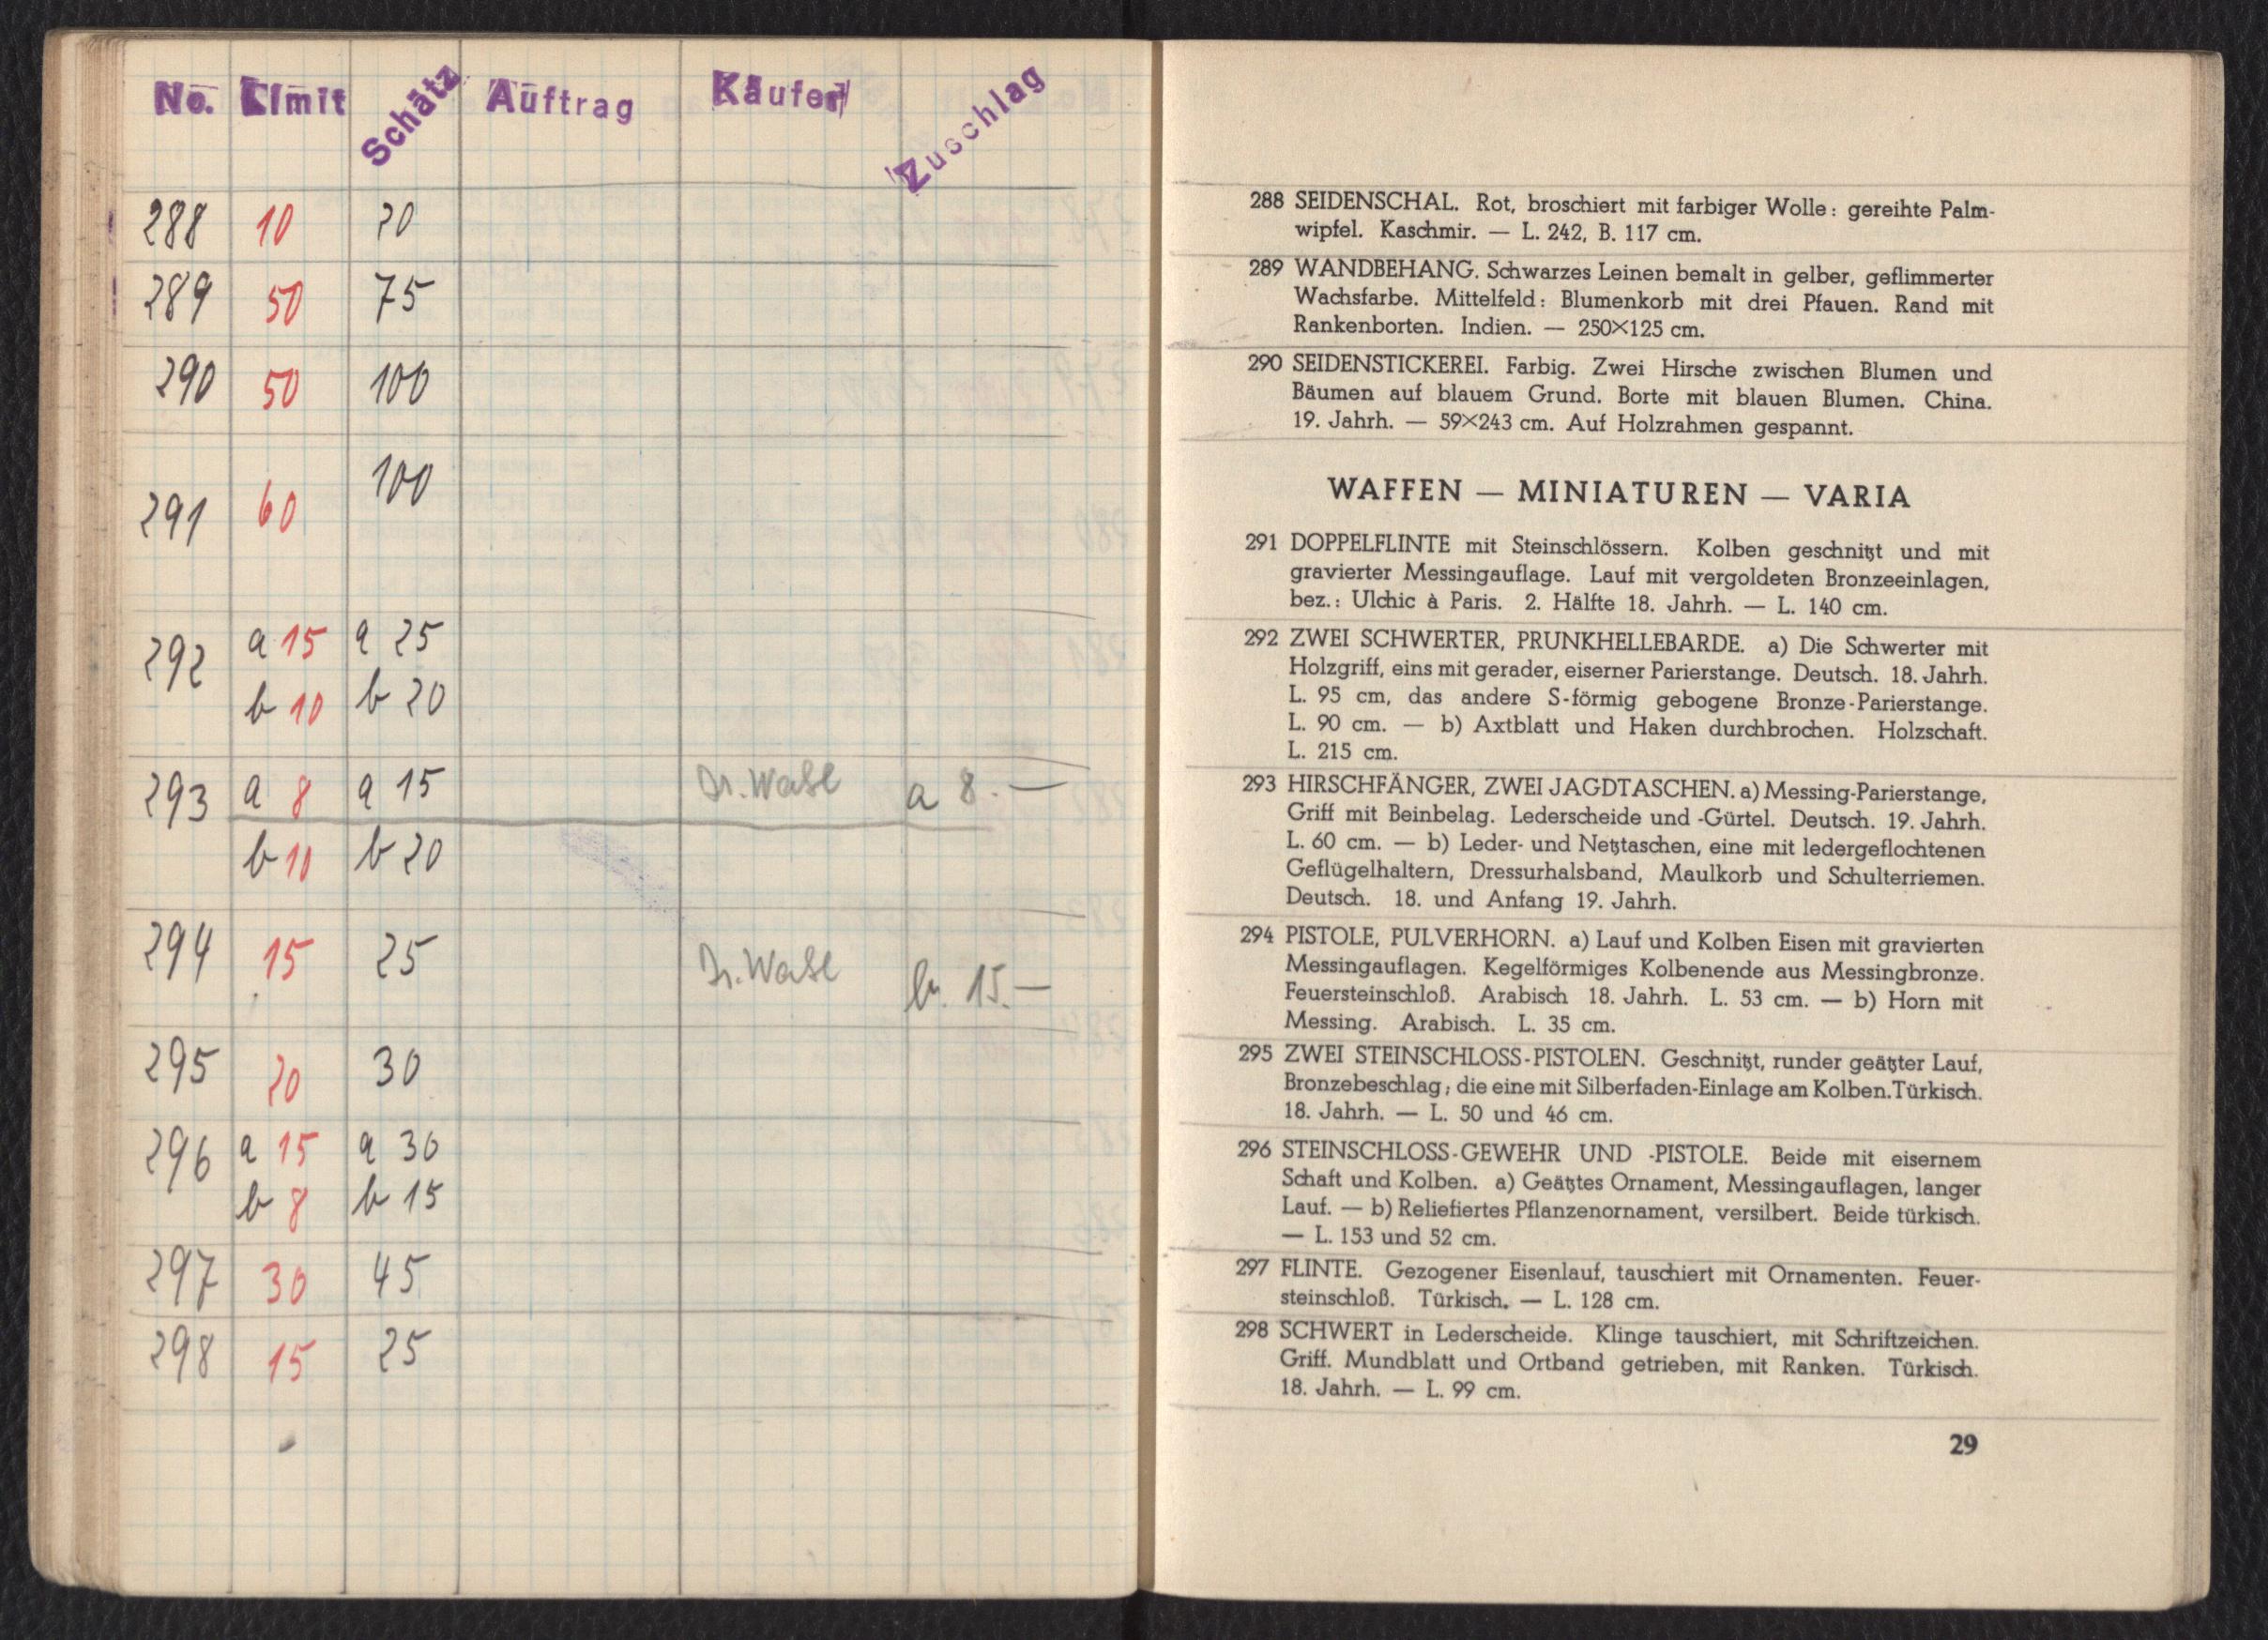 No. Limit Schätz Auftrag Käufer Zuschlag
288 10 20
289 50 75
290 50 100
291 60 100
292 a 15 a 25
b 10 b 20
293 a 8 a 15 a 8.—
b 10 b 20
294 15 25 b. 15.—
295 20 30
296 a 15 a 30
b 8 b 15
297 30 45
298 15 25
288 SEIDENSCHAL. Rot, broschiert mit farbiger Wolle: gereihte Palm-
wipfel. Kaschmir. — L. 242, B. 117 cm.
289 WANDBEHANG. Schwarzes Leinen bemalt in gelber, geflimmerter
Wachsfarbe. Mittelfeld: Blumenkorb mit drei Pfauen. Rand mit
Rankenborten. Indien. — 250×125 cm.
290 SEIDENSTICKEREI. Farbig. Zwei Hirsche zwischen Blumen und
Bäumen auf blauem Grund. Borte mit blauen Blumen. China.
19. Jahrh. — 59×243 cm. Auf Holzrahmen gespannt.
WAFFEN — MINIATUREN — VARIA
291 DOPPELFLINTE mit Steinschlössern. Kolben geschnitzt und mit
gravierter Messingauflage. Lauf mit vergoldeten Bronzeeinlagen,
bez.: Ulchic à Paris. 2. Hälfte 18. Jahrh. — L. 140 cm.
292 ZWEI SCHWERTER, PRUNKHELLEBARDE. a) Die Schwerter mit
Holzgriff, eins mit gerader, eiserner Parierstange. Deutsch. 18. Jahrh.
L. 95 cm, das andere S-förmig gebogene Bronze-Parierstange.
L. 90 cm. — b) Axtblatt und Haken durchbrochen. Holzschaft.
L. 215 cm.
293 HIRSCHFÄNGER, ZWEI JAGDTASCHEN. a) Messing-Parierstange,
Griff mit Beinbelag. Lederscheide und -Gürtel. Deutsch. 19. Jahrh.
L. 60 cm. — b) Leder- und Netztaschen, eine mit ledergeflochtenen
Geflügelhaltern, Dressurhalsband, Maulkorb und Schulterriemen.
Deutsch. 18. und Anfang 19. Jahrh.
294 PISTOLE, PULVERHORN. a) Lauf und Kolben Eisen mit gravierten
Messingauflagen. Kegelförmiges Kolbenende aus Messingbronze.
Feuersteinschloß. Arabisch 18. Jahrh. L. 53 cm. — b) Horn mit
Messing. Arabisch. L. 35 cm.
295 ZWEI STEINSCHLOSS-PISTOLEN. Geschnitzt, runder geätzter Lauf,
Bronzebeschlag; die eine mit Silberfaden-Einlage am Kolben. Türkisch.
18. Jahrh. — L. 50 und 46 cm.
296 STEINSCHLOSS-GEWEHR UND -PISTOLE. Beide mit eisernem
Schaft und Kolben. a) Geätztes Ornament, Messingauflagen, langer
Lauf. — b) Reliefiertes Pflanzenornament, versilbert. Beide türkisch.
— L. 153 und 52 cm.
297 FLINTE. Gezogener Eisenlauf, tauschiert mit Ornamenten. Feuer-
steinschloß. Türkisch. — L. 128 cm.
298 SCHWERT in Lederscheide. Klinge tauschiert, mit Schriftzeichen.
Griff. Mundblatt und Ortband getrieben, mit Ranken. Türkisch.
18. Jahrh. — L. 99 cm.
29